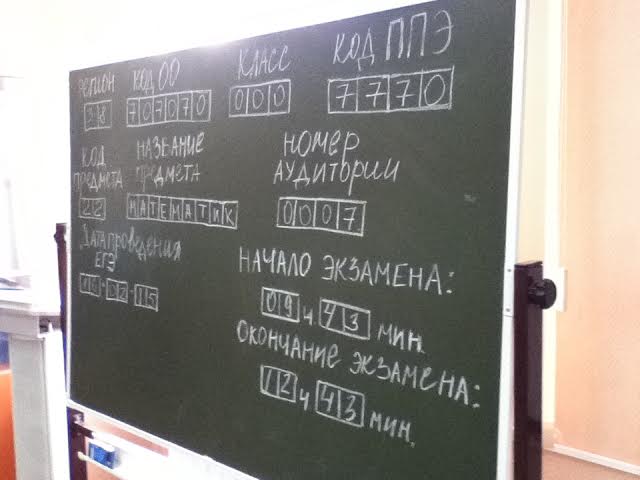 РЕГИОН КОД ОО КЛАСС КОД ППЭ
38 707070 000 7770
КОД НАЗВАНИЕ НОМЕР
ПРЕДМЕТА ПРЕДМЕТА АУДИТОРИИ
22 МАТЕМАТИК 0007
ДАТА ПРОВЕДЕНИЯ
ЕГЭ
02-15
НАЧАЛО ЭКЗАМЕНА:
09 ч 43 мин.
ОКОНЧАНИЕ ЭКЗАМЕНА:
12 ч 43 мин.